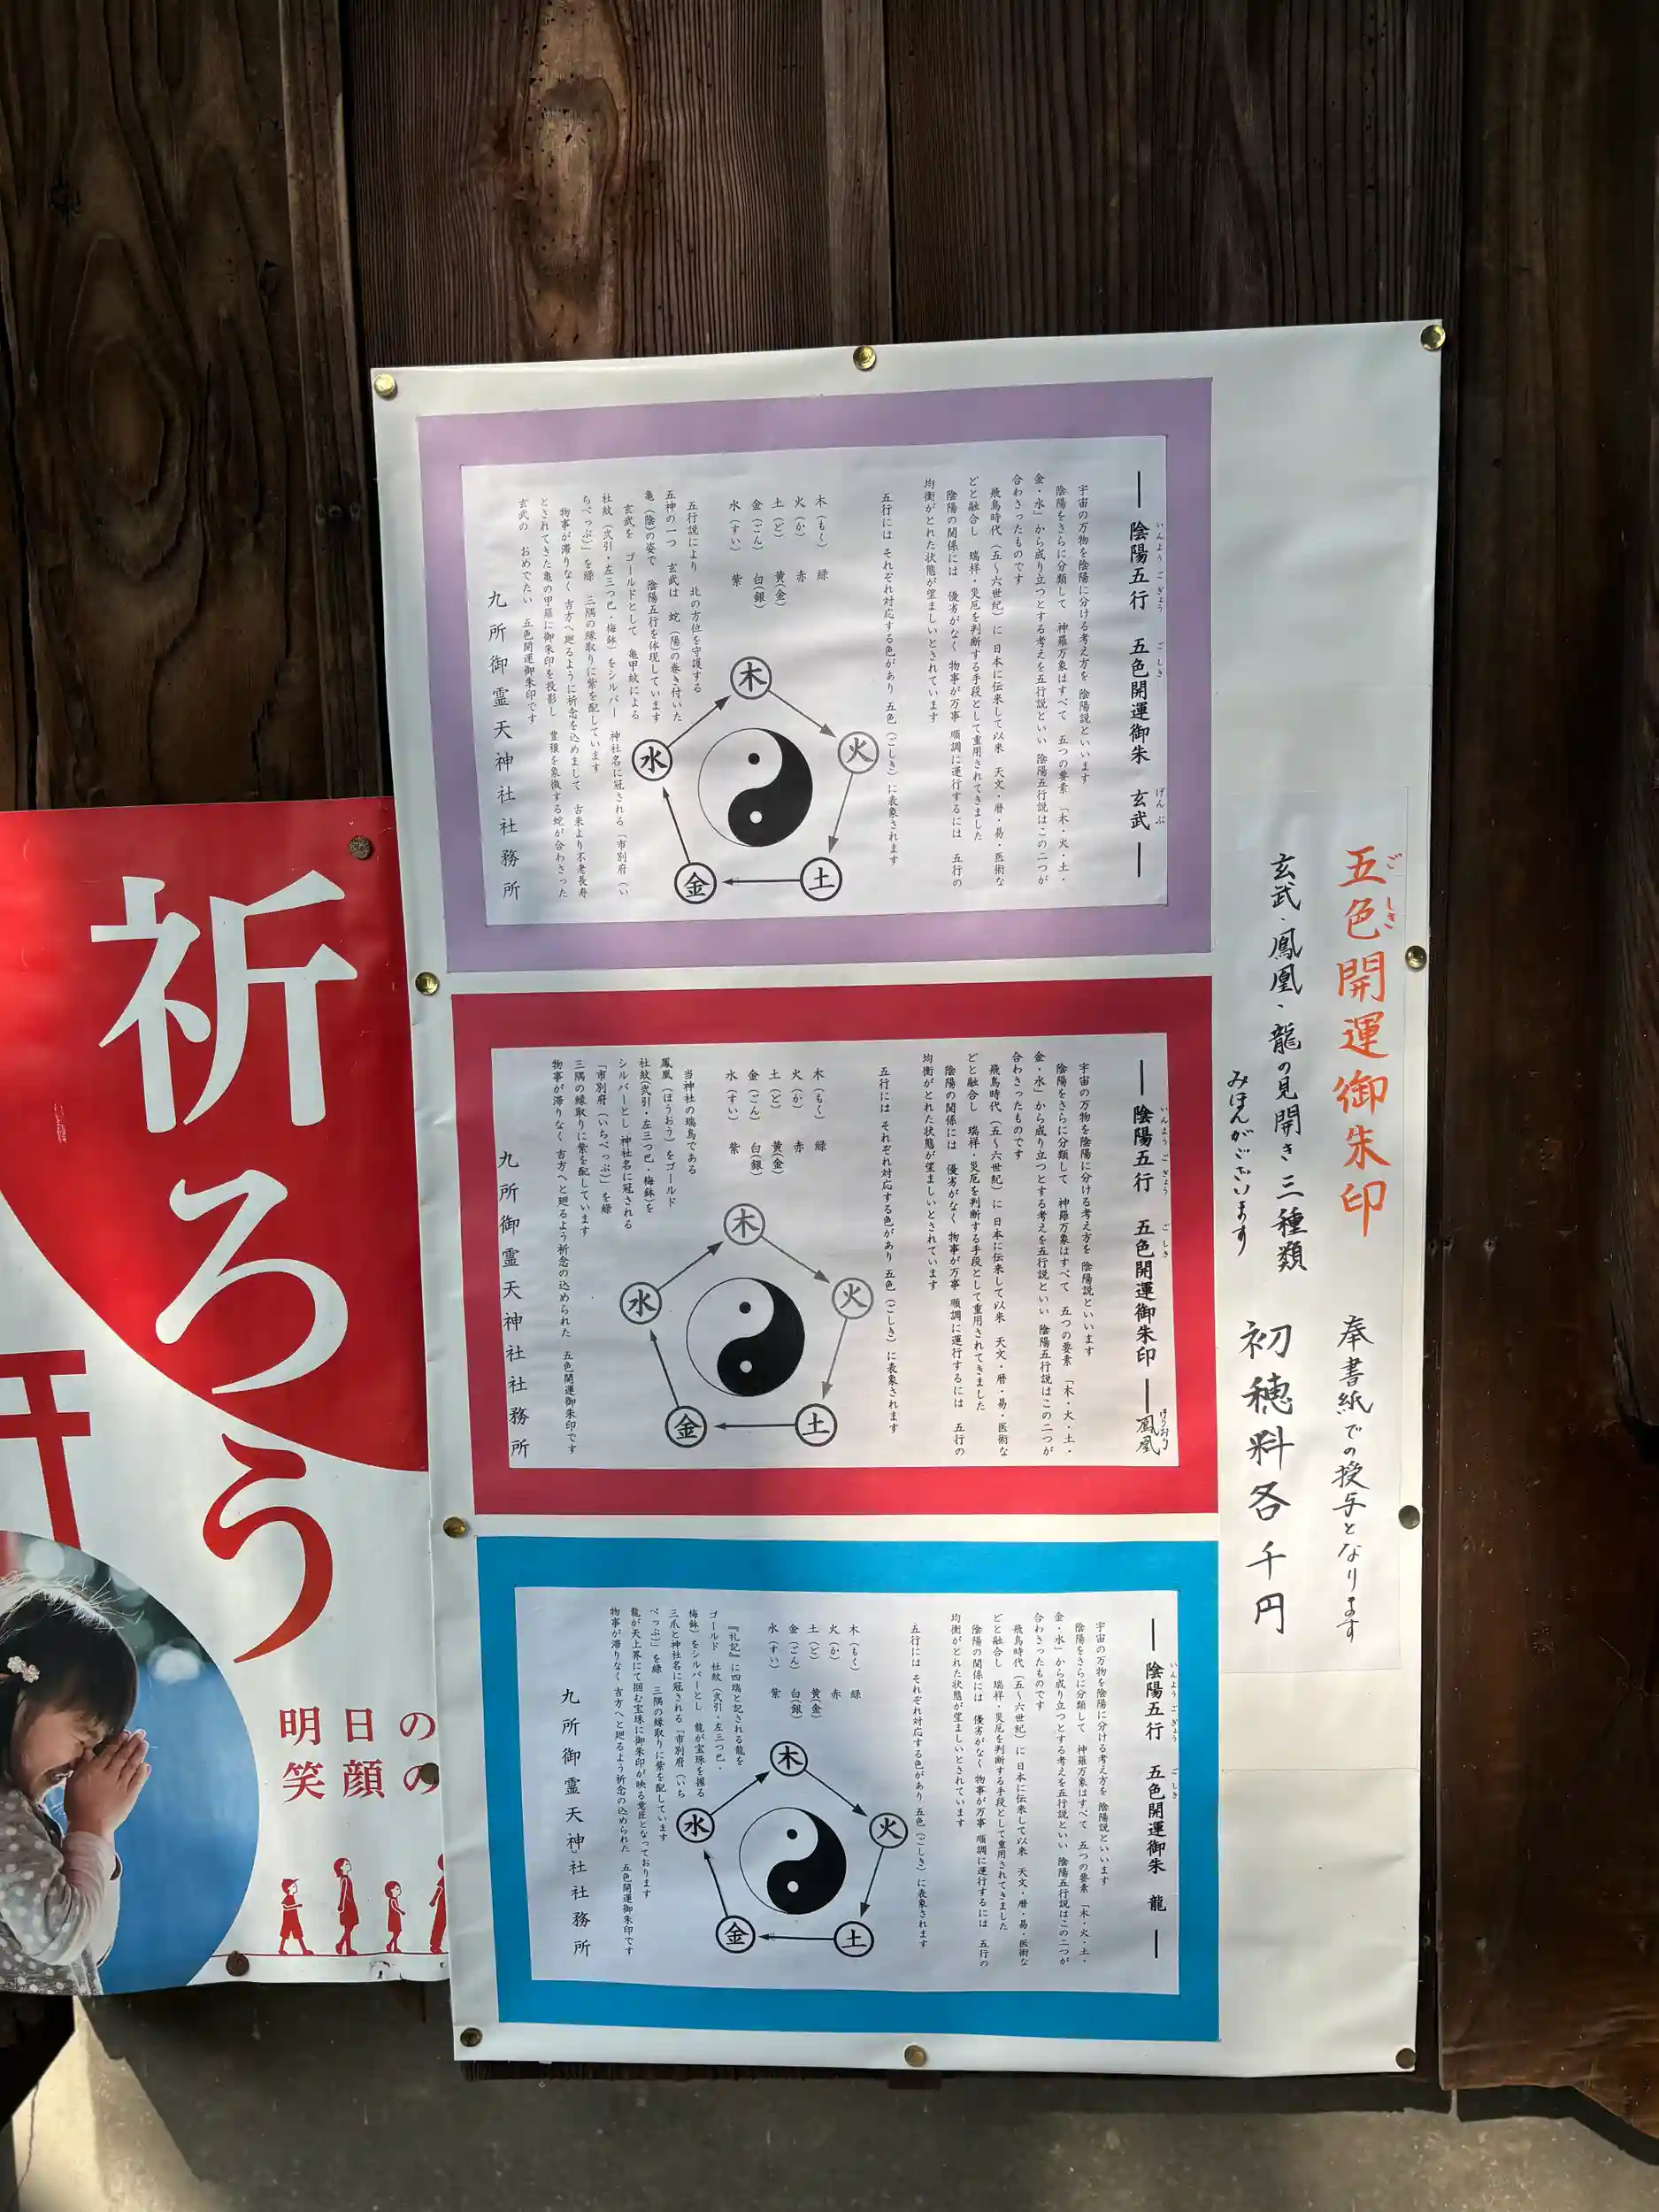 五色開運御朱印
ごしき
奉書紙での授与となります
玄武・鳳凰・龍の見開き三種類
みほんがございます
初穂料各千円
― 陰陽五行 五色開運御朱 玄武 ―
いんようごぎょう ごしき げんぶ
宇宙の万物を陰陽に分ける考え方を 陰陽説といいます
陰陽をさらに分類して 神羅万象はすべて 五つの要素 「木・火・土・
金・水」から成り立つとする考えを五行説といい 陰陽五行説はこの二つが
合わさったものです
飛鳥時代（五～六世紀）に 日本に伝来して以来 天文・暦・易・医術な
どと融合し 瑞祥・災厄を判断する手段として重用されてきました
陰陽の関係には 優劣がなく 物事が万事 順調に運行するには 五行の
均衡がとれた状態が望ましいとされています
五行には それぞれ対応する色があり 五色（ごしき）に表象されます
木（もく） 緑
火（か） 赤
土（ど） 黄(金)
金（ごん） 白(銀)
水（すい） 紫
木
火
土
金
水
五行説により 北の方位を守護する
五神の一つ 玄武は 蛇（陽）の巻き付いた
亀（陰）の姿で 陰陽五行を体現しています
玄武を ゴールドとして 亀甲紋による
社紋（弐引・左三つ巴・梅鉢）をシルバー 神社名に冠される「市別府（い
ちべっぷ）」を緑 三隅の縁取りに紫を配しています
物事が滞りなく 吉方へ廻るように祈念を込めまして 古来より不老長寿
とされてきた亀の甲羅に御朱印を投影し 豊穣を象徴する蛇が合わさった
玄武の おめでたい 五色開運御朱印です
九所御霊天神社社務所
― 陰陽五行 五色開運御朱印 ― 鳳凰
いんようごぎょう ごしき ほうおう
宇宙の万物を陰陽に分ける考え方を 陰陽説といいます
陰陽をさらに分類して 神羅万象はすべて 五つの要素 「木・火・土・
金・水」から成り立つとする考えを五行説といい 陰陽五行説はこの二つが
合わさったものです
飛鳥時代（五～六世紀）に 日本に伝来して以来 天文・暦・易・医術な
どと融合し 瑞祥・災厄を判断する手段として重用されてきました
陰陽の関係には 優劣がなく 物事が万事 順調に運行するには 五行の
均衡がとれた状態が望ましいとされています
五行には それぞれ対応する色があり 五色（ごしき）に表象されます
木（もく） 緑
火（か） 赤
土（ど） 黄(金)
金（ごん） 白(銀)
水（すい） 紫
木
火
土
金
水
当神社の瑞鳥である
鳳凰（ほうおう）をゴールド
社紋(弐引・左三つ巴・梅鉢)を
シルバーとし 神社名に冠される
「市別府（いちべっぷ）」を緑
三隅の縁取りに紫を配しています
物事が滞りなく 吉方へと廻るよう祈念の込められた 五色開運御朱印です
九所御霊天神社社務所
― 陰陽五行 五色開運御朱 龍 ―
いんようごぎょう ごしき
宇宙の万物を陰陽に分ける考え方を 陰陽説といいます
陰陽をさらに分類して 神羅万象はすべて 五つの要素 「木・火・土・
金・水」から成り立つとする考えを五行説といい 陰陽五行説はこの二つが
合わさったものです
飛鳥時代（五～六世紀）に 日本に伝来して以来 天文・暦・易・医術な
どと融合し 瑞祥・災厄を判断する手段として重用されてきました
陰陽の関係には 優劣がなく 物事が万事 順調に運行するには 五行の
均衡がとれた状態が望ましいとされています
五行には それぞれ対応する色があり 五色（ごしき）に表象されます
木（もく） 緑
火（か） 赤
土（ど） 黄(金)
金（ごん） 白(銀)
水（すい） 紫
木
火
土
金
水
『礼記』に四瑞と記される龍を
ゴールド 社紋（弐引・左三つ巴・
梅鉢）をシルバーとし 龍が宝珠を握る
三爪と神社名に冠される「市別府（いち
べっぷ）」を緑 三隅の縁取りに紫を配しています
龍が天上界にて掴む宝珠に御朱印が映る意匠となっております
物事が滞りなく 吉方へと廻るよう祈念の込められた 五色開運御朱印です
九所御霊天神社社務所
祈ろう
明日の
笑顔の